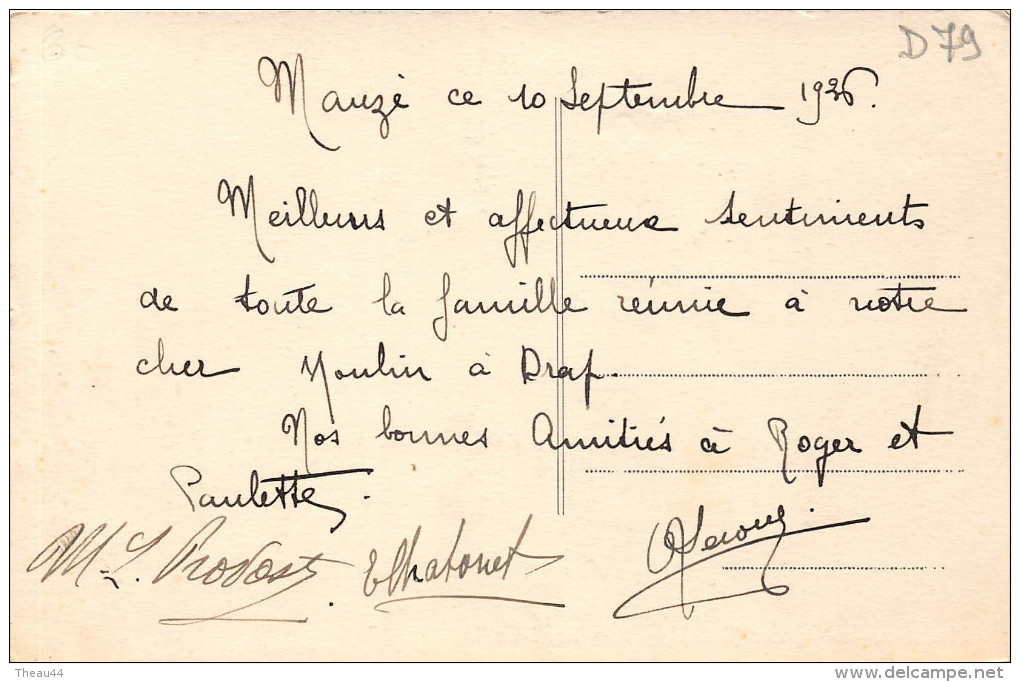 D79
Mauzé ce 10 Septembre 1926.
Meilleurs et affectueux sentiments
de toute la famille réunie à notre
cher Moulin à Drap.
Nos bonnes Amitiés à Roger et
Paulette.
M. L. Provost EChatonet
Theau44
www.delcampe.net